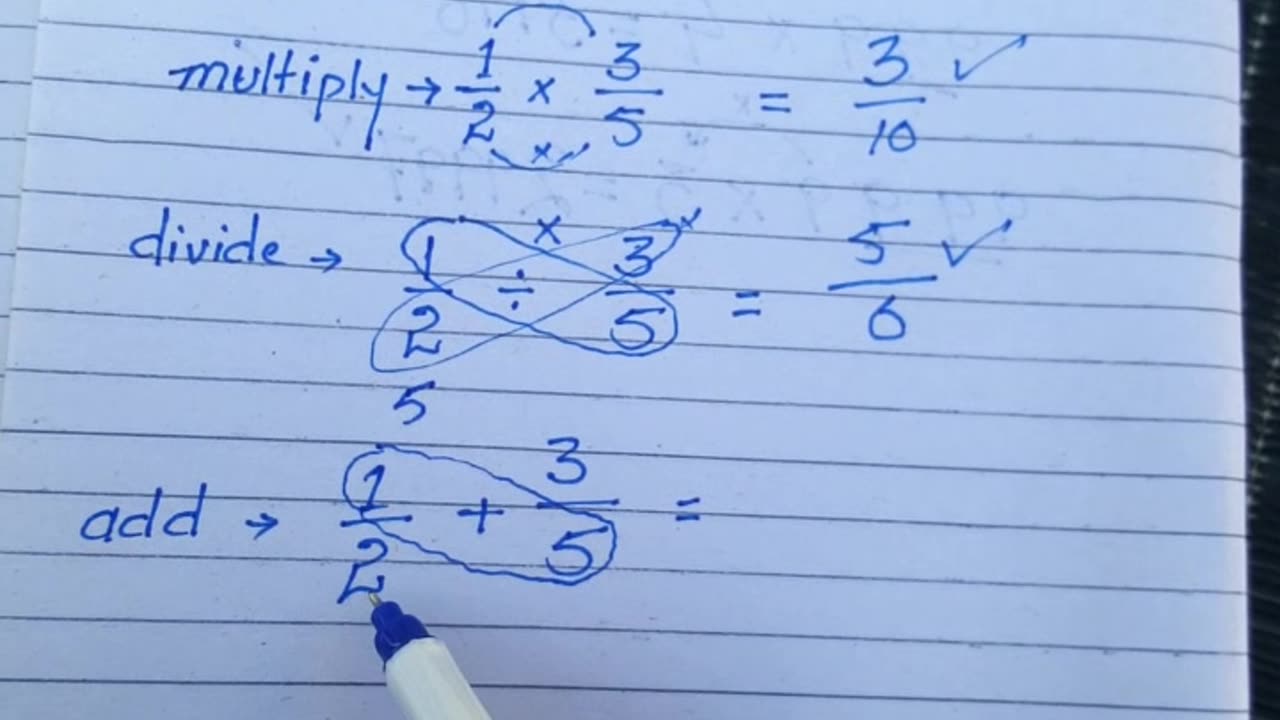 multiply → 1/2 × 3/5 = 3/10 ✓
×
×
divide → 1/2 ÷ 3/5 = 5/6 ✓
5
add → 1/2 + 3/5 =